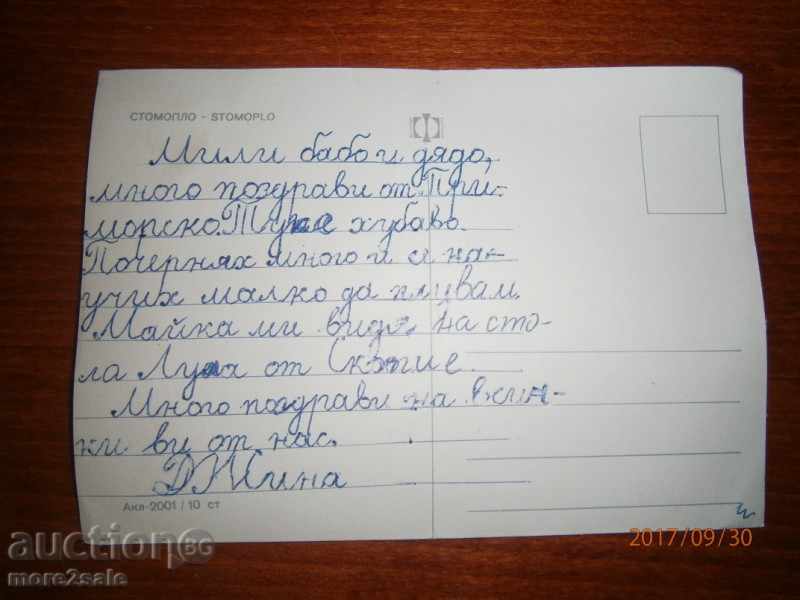 СТОМОПЛО - STOMOPLO
Мили бабо и дядо,
много поздрави от При-
морско. Тук е хубаво.
Почернях много и се на-
учих малко да плувам.
Майка ми видя на сто-
ла от Скопие.
Много поздрави на
ки ви от нас.
Акл-2001 / 10 ст
2017/09/30
auction BG
more2sale